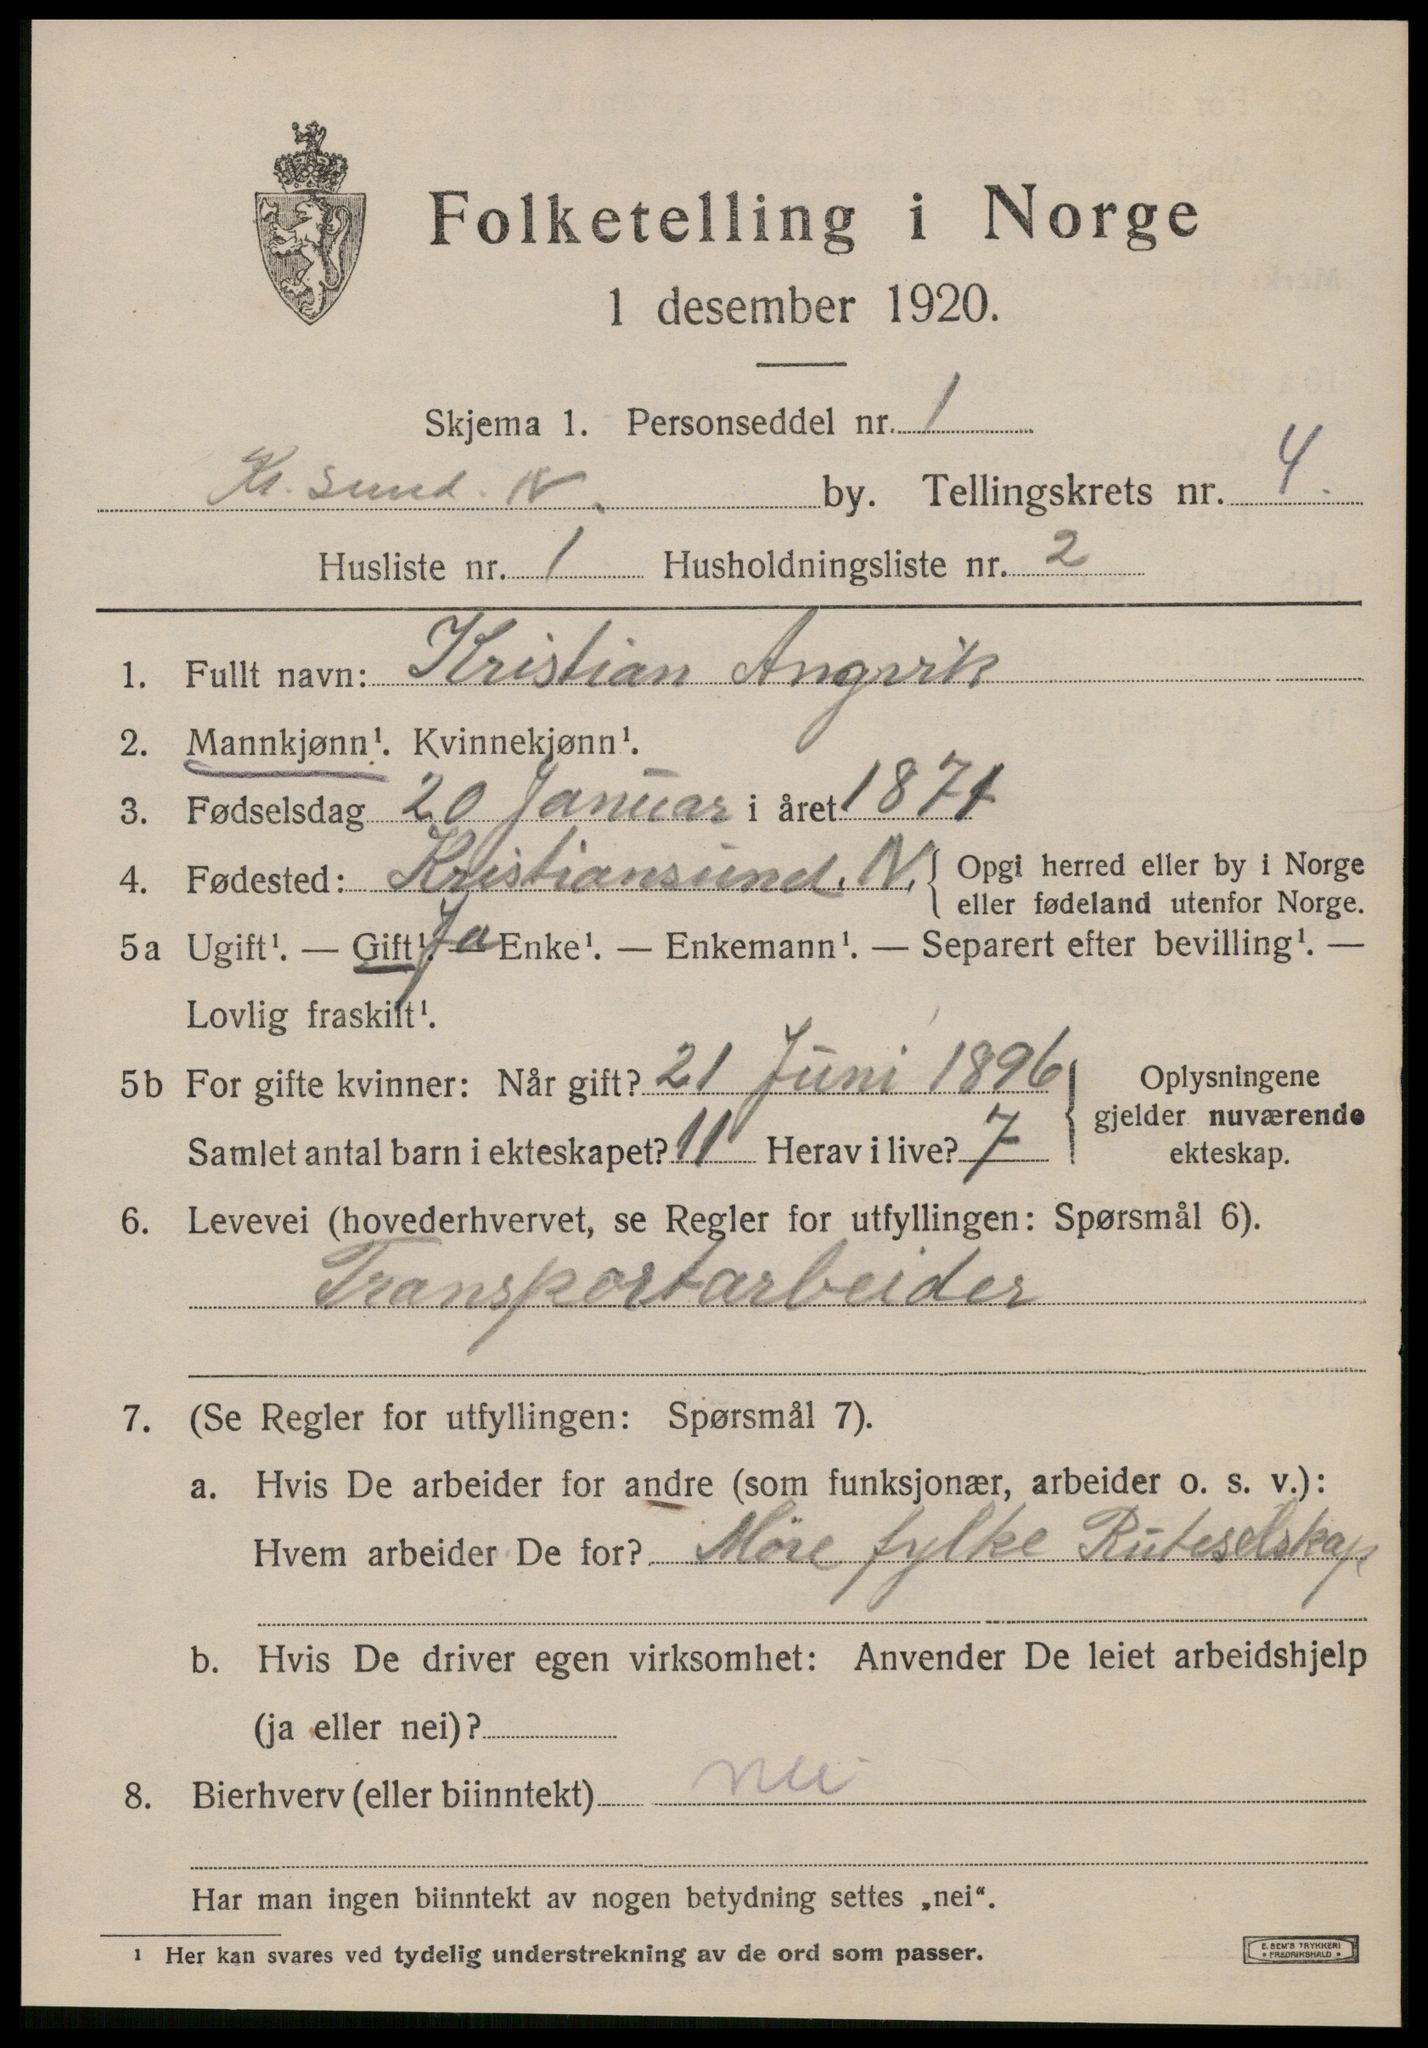 Folketelling i Norge
1 desember 1920.
Skjema 1. Personseddel nr. 1
Kr. sund. N. by. Tellingskrets nr. 4.
Husliste nr. 1 Husholdningsliste nr. 2
1. Fullt navn: Kristian Angvik
2. Mannkjønn¹. Kvinnekjønn¹.
3. Fødselsdag 20 Januar i året 1871
4. Fødested: Kristiansund. N. { Opgi herred eller by i Norge
eller fødeland utenfor Norge.
5a Ugift¹. — Gift¹. Ja — Enke¹. — Enkemann¹. — Separert efter bevilling¹. —
Lovlig fraskilt¹.
5b For gifte kvinner: Når gift? 21 Juni 1896 } Oplysningene
gjelder nuværende
Samlet antal barn i ekteskapet? 11 Herav i live? 7 ekteskap.
6. Levevei (hovederhvervet, se Regler for utfyllingen: Spørsmål 6).
Transportarbeider
7. (Se Regler for utfyllingen: Spørsmål 7).
a. Hvis De arbeider for andre (som funksjonær, arbeider o. s. v.):
Hvem arbeider De for? Møre fylke Ruteselskap
b. Hvis De driver egen virksomhet: Anvender De leiet arbeidshjelp
(ja eller nei)?
8. Bierhverv (eller biinntekt) nei
Har man ingen biinntekt av nogen betydning settes „nei“.
¹ Her kan svares ved tydelig understrekning av de ord som passer.
E. SEM'S TRYKKERI
* FREDRIKSHALD *